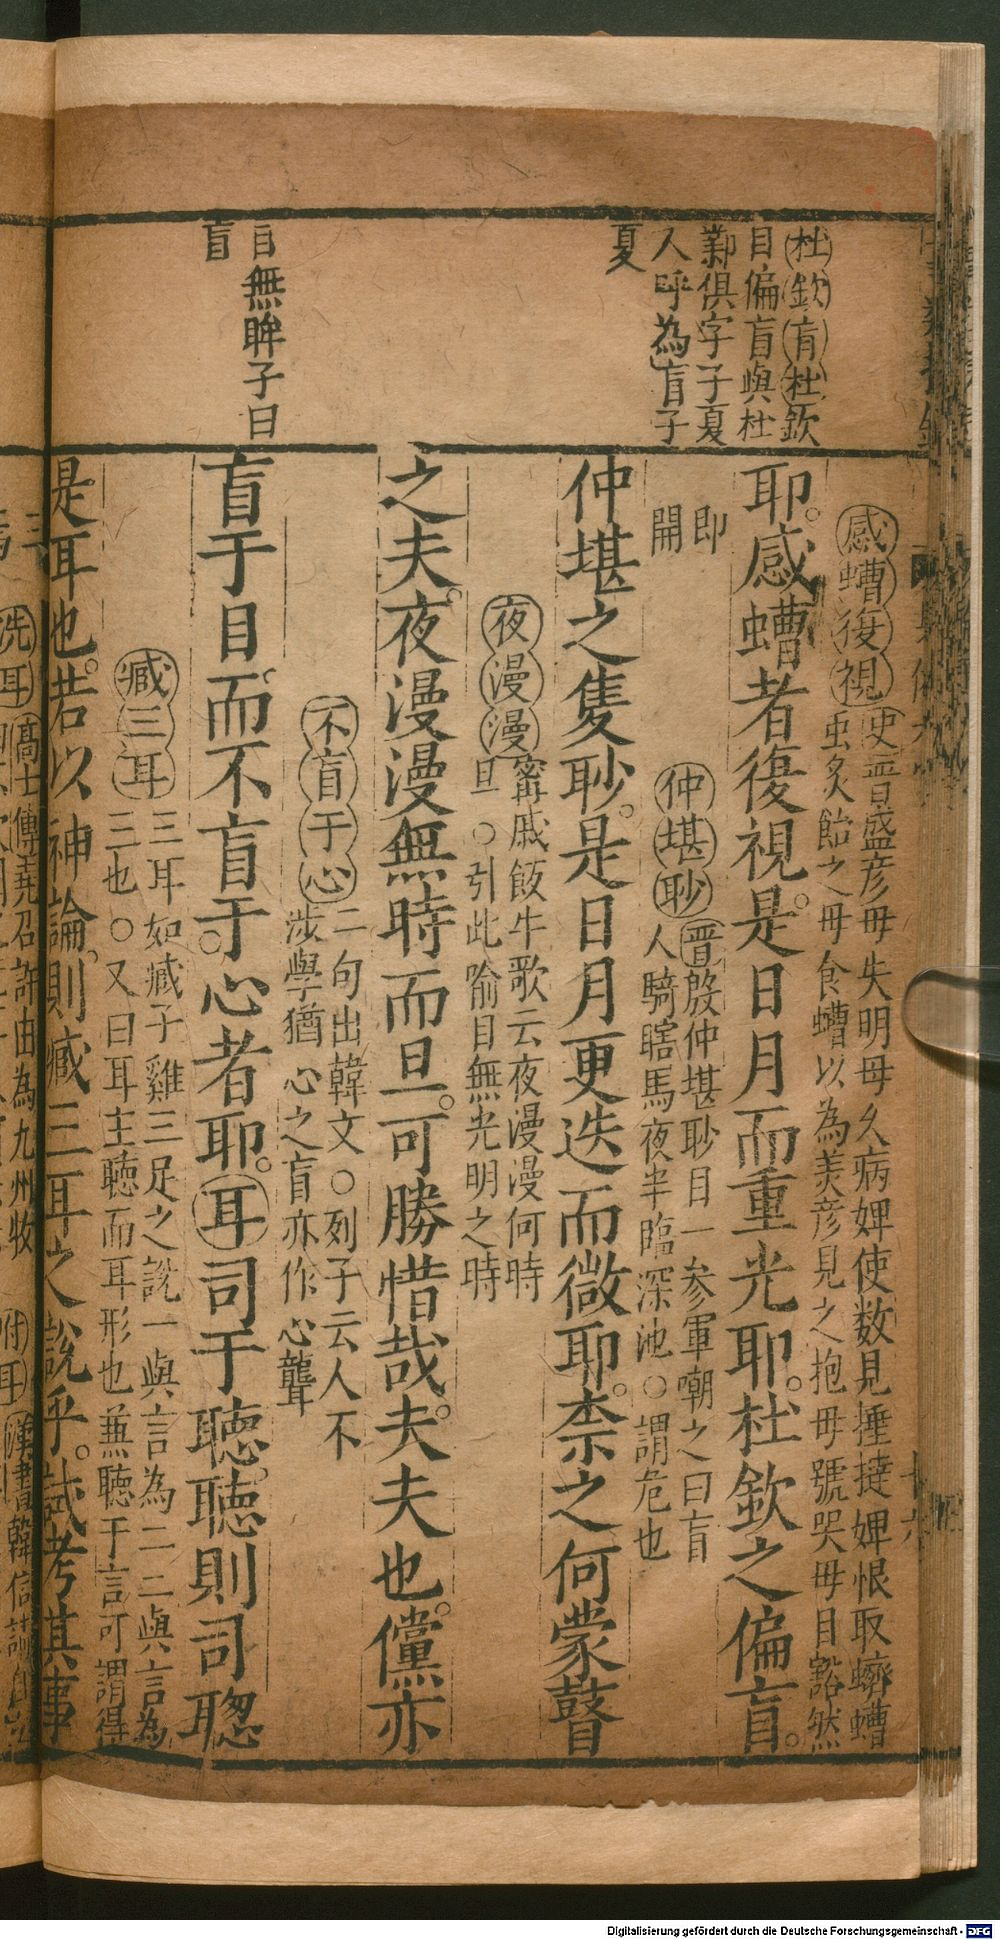 杜欽盲杜欽
目偏盲與杜
鄴俱字子夏
人呼為盲子
夏
目無眸子曰
盲
感螬復視史晉盛彥母失明母久病婢使數見捶撻婢恨取蠐螬
虫炙飴之母食螬以為美彥見之抱母號哭母目豁然
即
開
耶感螬者復視是日月而重光耶杜欽之偏盲
仲堪眇晉殷仲堪眇目一參軍嘲之曰盲
人騎瞎馬夜半臨深池○謂危也
仲堪之隻眇是日月更迭而微耶柰之何蒙瞽
夜漫漫甯戚飯牛歌云夜漫漫何時
旦○引此喻目無光明之時
之夫夜漫漫無時而旦可勝惜哉夫夫也儻亦
不盲于心二句出韓文○列子云人不
涉學猶心之盲亦作心聾
盲于目而不盲于心者耶耳司于聽聽則司聰
臧三耳三耳如臧子雞三足之說一與言為二二與言為
三也○又曰耳主聽而耳形也兼聽于言可謂得
是耳也若以神論則臧三耳之說乎試考其事
洗耳高士傳堯召許由為九州牧 附耳漢書韓信